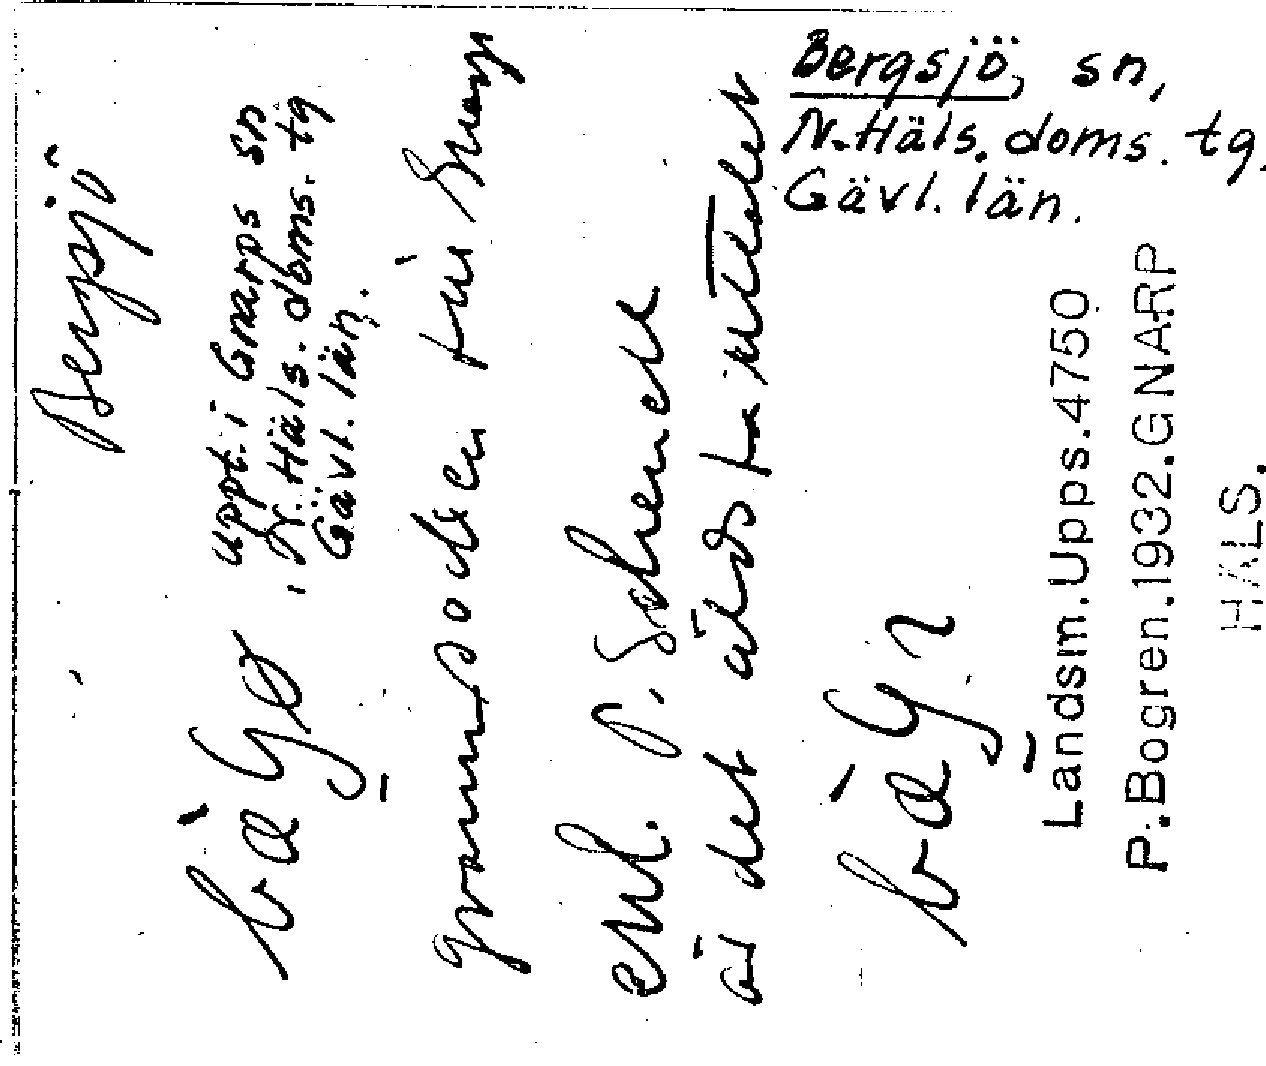 Bergsjö, sn,
N. Häls. doms. tg.
Gävl. län.
Bergsjö
uppt. i Gnarps sn
N. Häls. doms. tg
Gävl. län.
grannsocken till Gnarp
enl. P. Schenell
är det
Landsm. Upps. 4750
P. Bogren. 1932. GNARP
HÄLS.